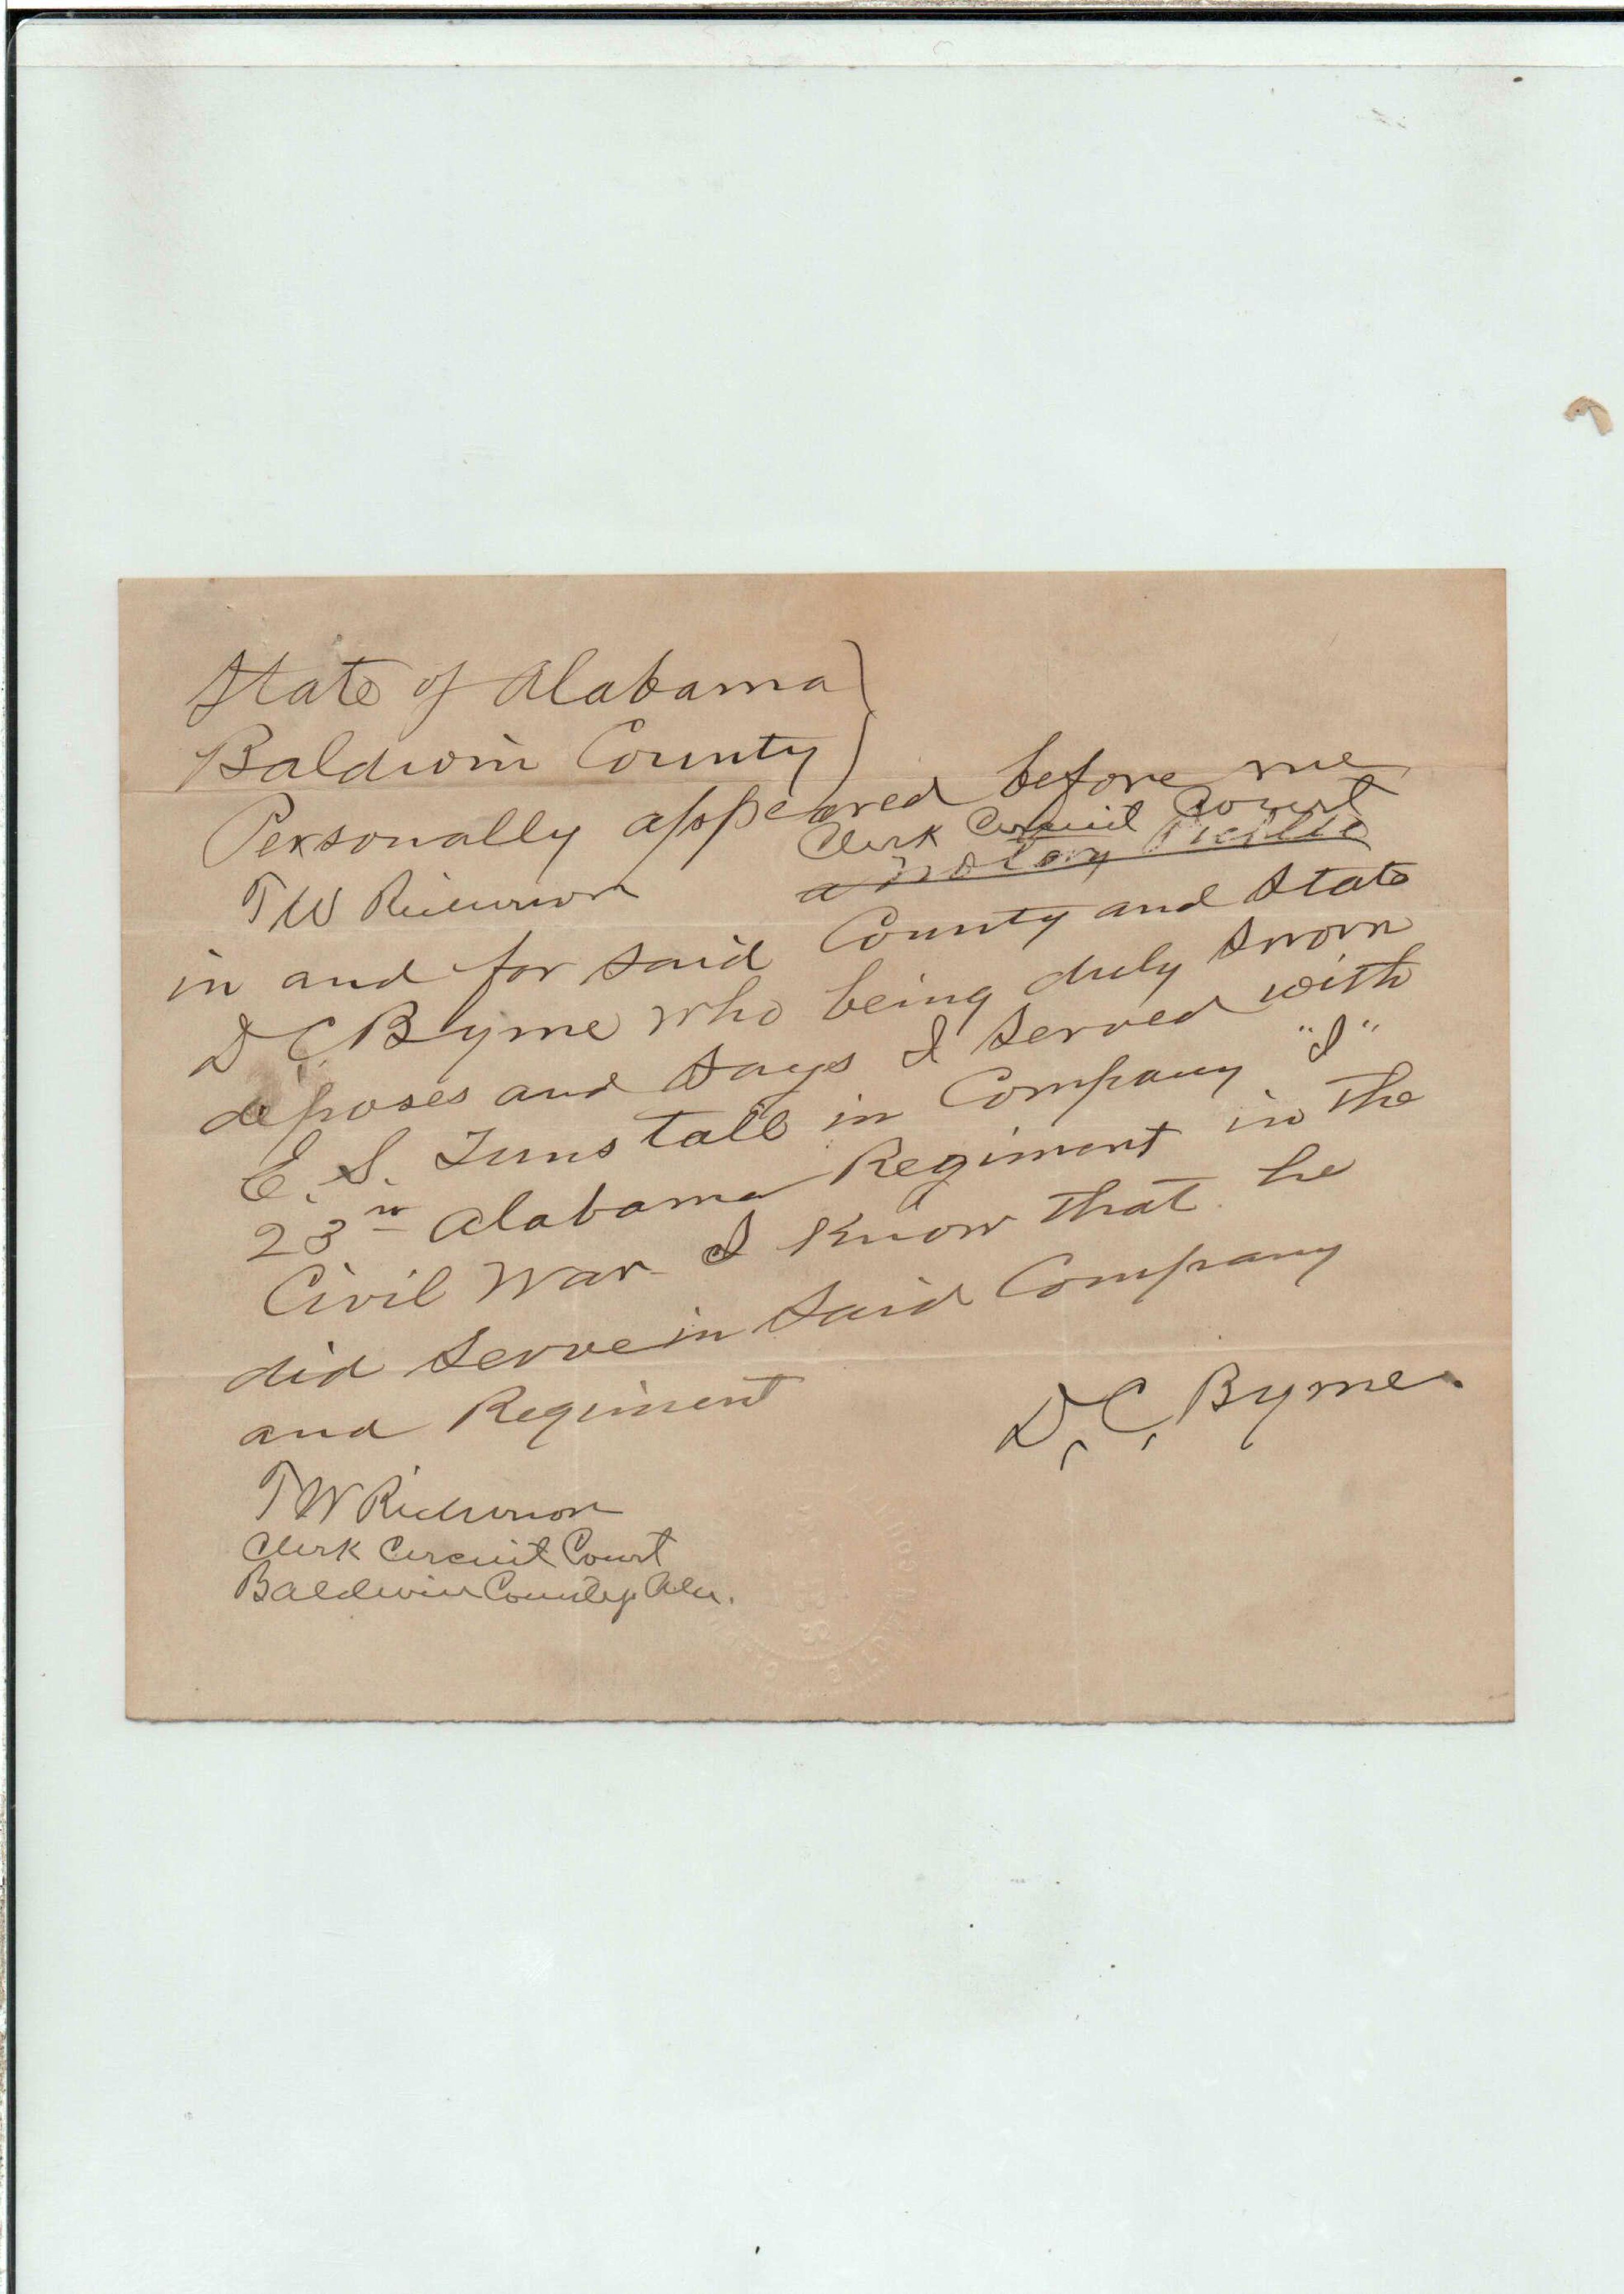 State of Alabama
Baldwin County
Personally appeared before me
Clerk Circuit Court
T W Richerson a Notary Public
in and for said County and State
D. C. Byrne who being duly sworn
deposes and says I served with
E. S. Tunstall in Company "I"
23rd Alabama Regiment in the
Civil War I know that he
did serve in said Company
and Regiment
D. C. Byrne.
T W Richerson
Clerk Circuit Court
Baldwin County, Ala.